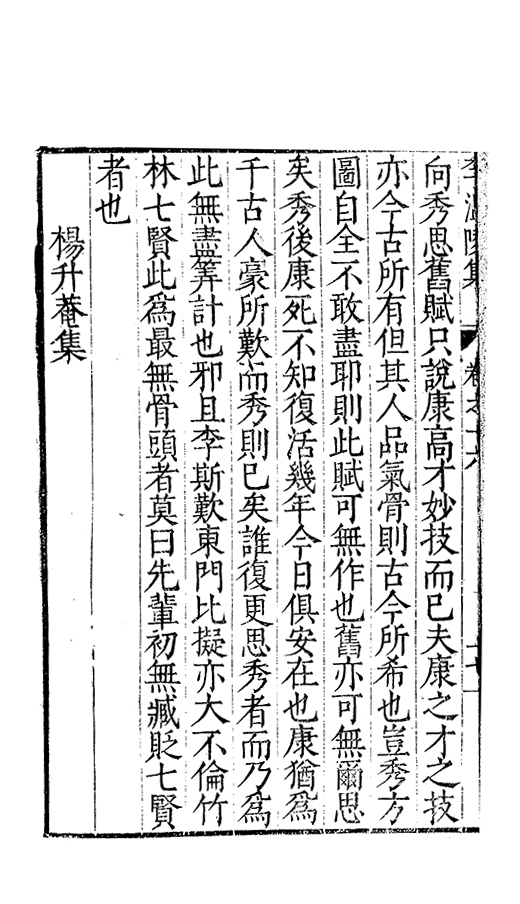 李溫陵集　卷之十六　十一
向秀思舊賦只說康高才妙技而已夫康之才之技
亦今古所有但其人品氣骨則古今所希也豈秀方
圖自全不敢盡耶則此賦可無作也舊亦可無爾思
矣秀後康死不知復活幾年今日俱安在也康猶為
千古人豪所歎而秀則已矣誰復更思秀者而乃為
此無盡筭計也邪且李斯歎東門比擬亦大不倫竹
林七賢此為最無骨頭者莫曰先輩初無臧貶七賢
者也
楊升菴集